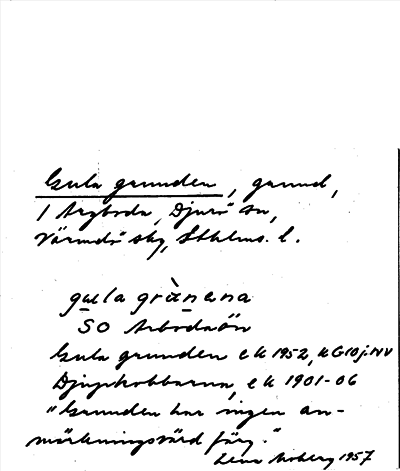 Gula grunden, grund,
/ Aspboda, Djurö sn,
Värmdö skg, Sthlms. l.
gula grànena
SO Arbodaön
Gula grunden ek 1952, KG10j.NV
Djupkobbarna, ek 1901-06
"Grunden har ingen an-
märkningsvärd färg."
Lena Moberg 1957